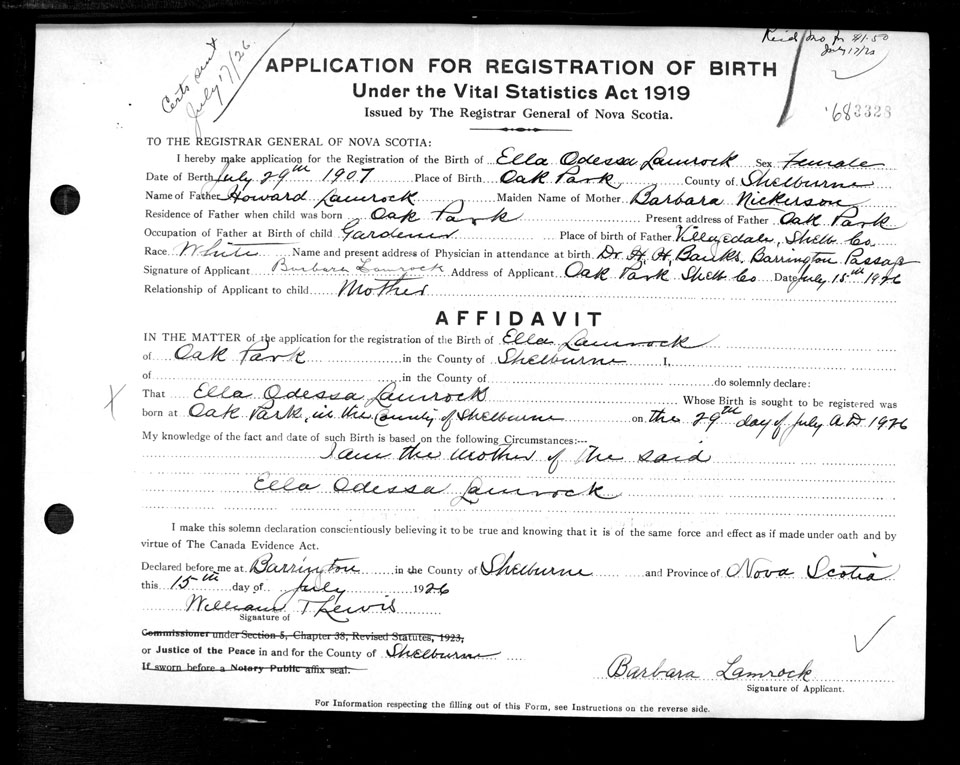 Certs sent
July 17/26.
July 17/26
APPLICATION FOR REGISTRATION OF BIRTH
Under the Vital Statistics Act 1919
Issued by The Registrar General of Nova Scotia.
683328
TO THE REGISTRAR GENERAL OF NOVA SCOTIA:
I hereby make application for the Registration of the Birth of Ella Odessa Lamrock Sex Female
Date of Birth July 29th 1907 Place of Birth Oak Park County of Shelburne
Name of Father Howard Lamrock Maiden Name of Mother Barbara Nickerson
Residence of Father when child was born Oak Park Present address of Father Oak Park
Occupation of Father at Birth of child Gardener Place of birth of Father Villagedale, Shelb. Co.
Race White Name and present address of Physician in attendance at birth. Dr. H. H. Banks, Barrington Passage
Signature of Applicant Barbara Lamrock Address of Applicant Oak Park Shelb Co Date July 15th 1926
Relationship of Applicant to child Mother
AFFIDAVIT
IN THE MATTER of the application for the registration of the Birth of Ella Lamrock
of Oak Park in the County of Shelburne I,
of in the County of do solemnly declare:
That Ella Odessa Lamrock Whose Birth is sought to be registered was
born at Oak Park, in the County of Shelburne on the 29th day of July A.D 1926
My knowledge of the fact and date of such Birth is based on the following Circumstances:---
I am the mother of the said
Ella Odessa Lamrock
I make this solemn declaration conscientiously believing it to be true and knowing that it is of the same force and effect as if made under oath and by
virtue of The Canada Evidence Act.
Declared before me at Barrington in the County of Shelburne and Province of Nova Scotia
this 15th day of July 1926
William T Lewis
Signature of
Commissioner under Section 5, Chapter 38, Revised Statutes, 1923,
or Justice of the Peace in and for the County of Shelburne
If sworn before a Notary Public affix seal.
Barbara Lamrock
Signature of Applicant.
For Information respecting the filling out of this Form, see Instructions on the reverse side.